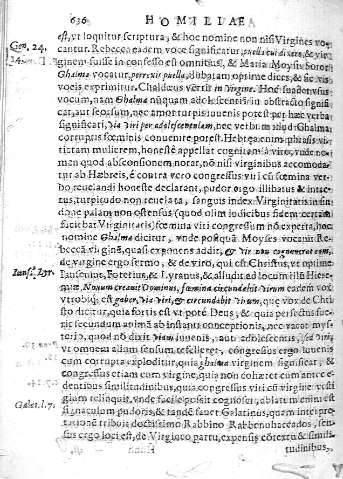 636 HOMILIAE
est, vt loquitur scriptura; & hoc nomine non nisi Virgines vo-
Gen. 24. cantur. Rebecca eadem voce significatur, puella
ginem fuisse in confesso est omnibus, & Maria Moysis Soror
Ghalma vocatur, perrexit puella, optime dices, & sic
vocis exprimitur. Chaldæus vertit in Virgine. Hoc
vocum, nam Ghalma nusquam adolescentiam in abstracto signifi-
cat, aut seorsum, nec amor turpis iuuenis potest per hæc verba
significari, Via viri per adolescentulam, nec verbum illud Ghalma,
corruptis fœminis conuenire potest. Hebræa enim phrasis vir
mulierem, honeste appellat cognitam à viro, unde no-
men quod absconsionem notat, nō nisi virginibus accomoda-
tur ab Hæbreis, è contra vero congressus viri cū fœmina ver-
bo reuelandi honeste declarant, pudor ergo illibatus & inta-
ctus, turpitudo non reuelata, sanguis index Virginitatis in
done palam non ostensus (quod olim iudicibus fidem certam
facit Virginitatis) fœmina viri congressum nō experta, hoc
nomine Ghalma dicitur, vnde postquā Moyses vocauit Rebe-
cca virginē, quasi exponens addit, & vir non cognouerat eam,
de virgine ergo sermo, & de viro, qui est Christus, vt optime
Ians. Lyr. Iansenius, & Lyranus, & alludit ad locum illū Hiere-
miæ, Nouum creauit Dominus, fœmina circundabit virum eadem vox
vtrobiq; est gaber, via viri, & circundabit virum, quæ vox de Chri
sto dicitur, quia fortis est vt poté Deus, & quia perfectus fue-
rit secundum animā ab instanti conceptionis, nec vacat myste-
rio, quod nō dixit viam iuuenis, aut adolescentis, sed viri,
vt omnem alium sensum tolleret, congressus ergo iuuenis
cum corrupta exploditur, quia ghalma virginem significat, &
congressus etiam cum virgine, quia non cohæret cum antece-
dentibus similitudinibus, quia congressus viri cū virgine vesti
gium relinquit, vnde facile possit cognosci, ablatum enim est
Galat. l. 7. signaculum pudoris, & tandē fauet Galatinus, quam interpre-
tationē tribuit doctissimo Rabbino Rabbenuhaccados, sen-
sus ergo loci est, de Virgineo partu, expensis cōtextu & simili
tudinibus,